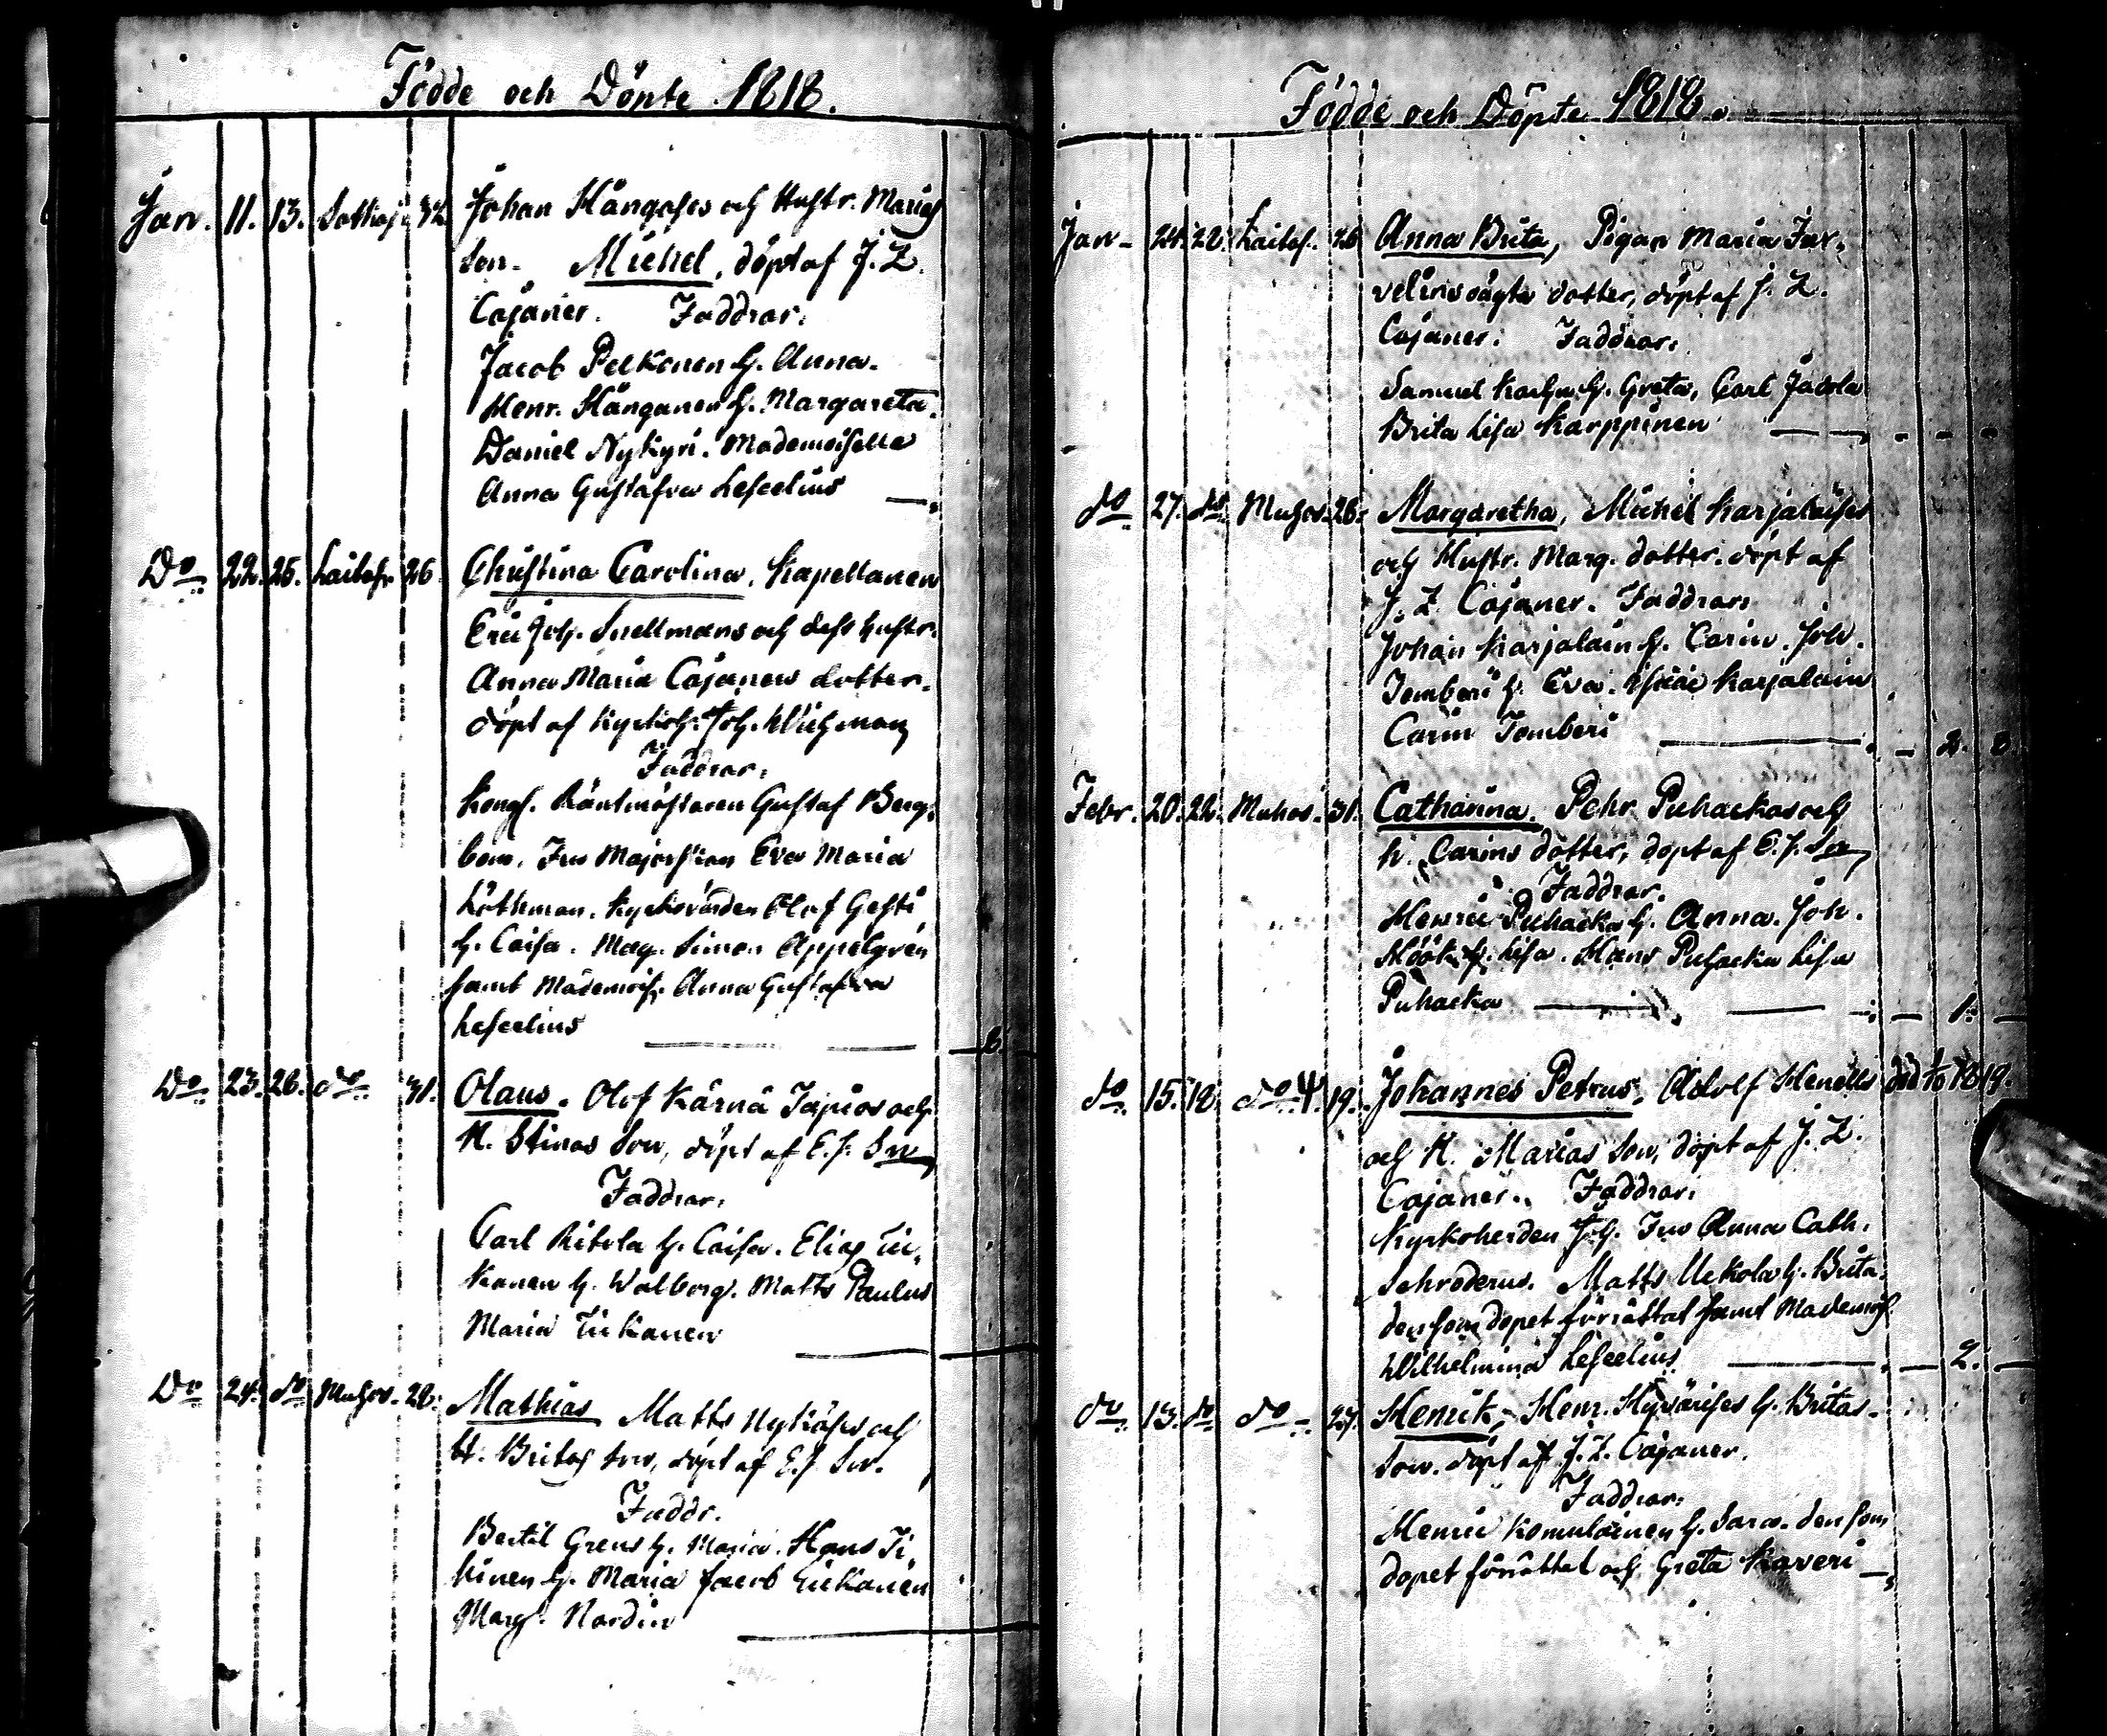 Födde och Döpte 1818.
Jan. 11. 13. 32. Johan Kångases och Hustr. Marias
Son. Michel, döpt af J. Z.
Cajaner. Faddrar.
Jacob Pelkonen h. Anna.
Henr. Kånganen h. Margareta.
Daniel Nykyri. Mademoiselle
Anna Gustafva Lescelius
Do 22. 25. Laitas. 26. Christina Carolina, Kapellanen
Eric Joh. Snellmans och dess hustr.
Anna Maria Cajaners dotter.
döpt af Kyrkoh. Joh. Wichman
Faddrar.
Kongl. Räntmästaren Gustaf Berg-
bom, Fru Eva Maria
Löthman. Kyrkovärden Olof
h. Caisa. Mag. Simon Appelgrén
samt Mademois. Anna Gustafva
Lescelius
6.
Do 23. 26. do 31. Olaus. Olof Kärnä Tapios och
H. Stinas Son, döpt af E. J. Sn
Faddrar.
Carl Ritola h. Caisa. Elias Tii-
kanen h. Walborg. Matts Paulus
Maria Tiikanen
Do 24. do Muhos. 28. Mathias Matts Nykäses och
H. Britas son, döpt af E. J. Sn.
Faddr.
Bertil Grens h. Maria. Hans Ti-
hinen h. Maria Jacob Tiikanen
Marg. Nordin
Födde och Döpte 1818.
Jan 24. 22. Laitas. 26 Anna Brita, Pigan Maria For-
velins oägta dotter, döpt af J. Z.
Cajaner. Faddrar.
Samuel h. Greta, Carl Jacola
Brita Lisa Karppinen
do 27. do Muhos. 28. Margaretha, Michel Karjalaises
och Hustr. Marg. dotter. döpt af
J. Z. Cajaner. Faddrar.
Johan Karjalain h. Carin. Joh.
Tomberi h. Eva. Karjalain
Carin Tomberi
2.
Febr. 20. 22. Muhos. 31. Catharina. Pehr Puhackas och
h. Carins dotter, döpt af E. J. Sn
Faddrar.
Henric Puhacka h. Anna. Joh.
Höök h. Lisa. Hans Puhacka Lisa
Puhacka
1.
do 15. 18. do 19. Johannes Petrus. Adolf Henells död 1819.
och H. Marias Son, döpt af J. Z.
Cajaner. Faddrar.
Kyrkoherden Joh. Fru Anna Cath.
Schroderus. Matts Uekola h. Brita.
den som dopet förrättat samt Mademois.
Wilhelmina Lescelius
2.
do 13. do do 27. Henrik, Henr. Hyvärises h. Britas
Son. döpt af J. Z. Cajaner.
Faddrar.
Henric Komulainen h. Sara. den som
dopet förrättat och Greta Kaveri